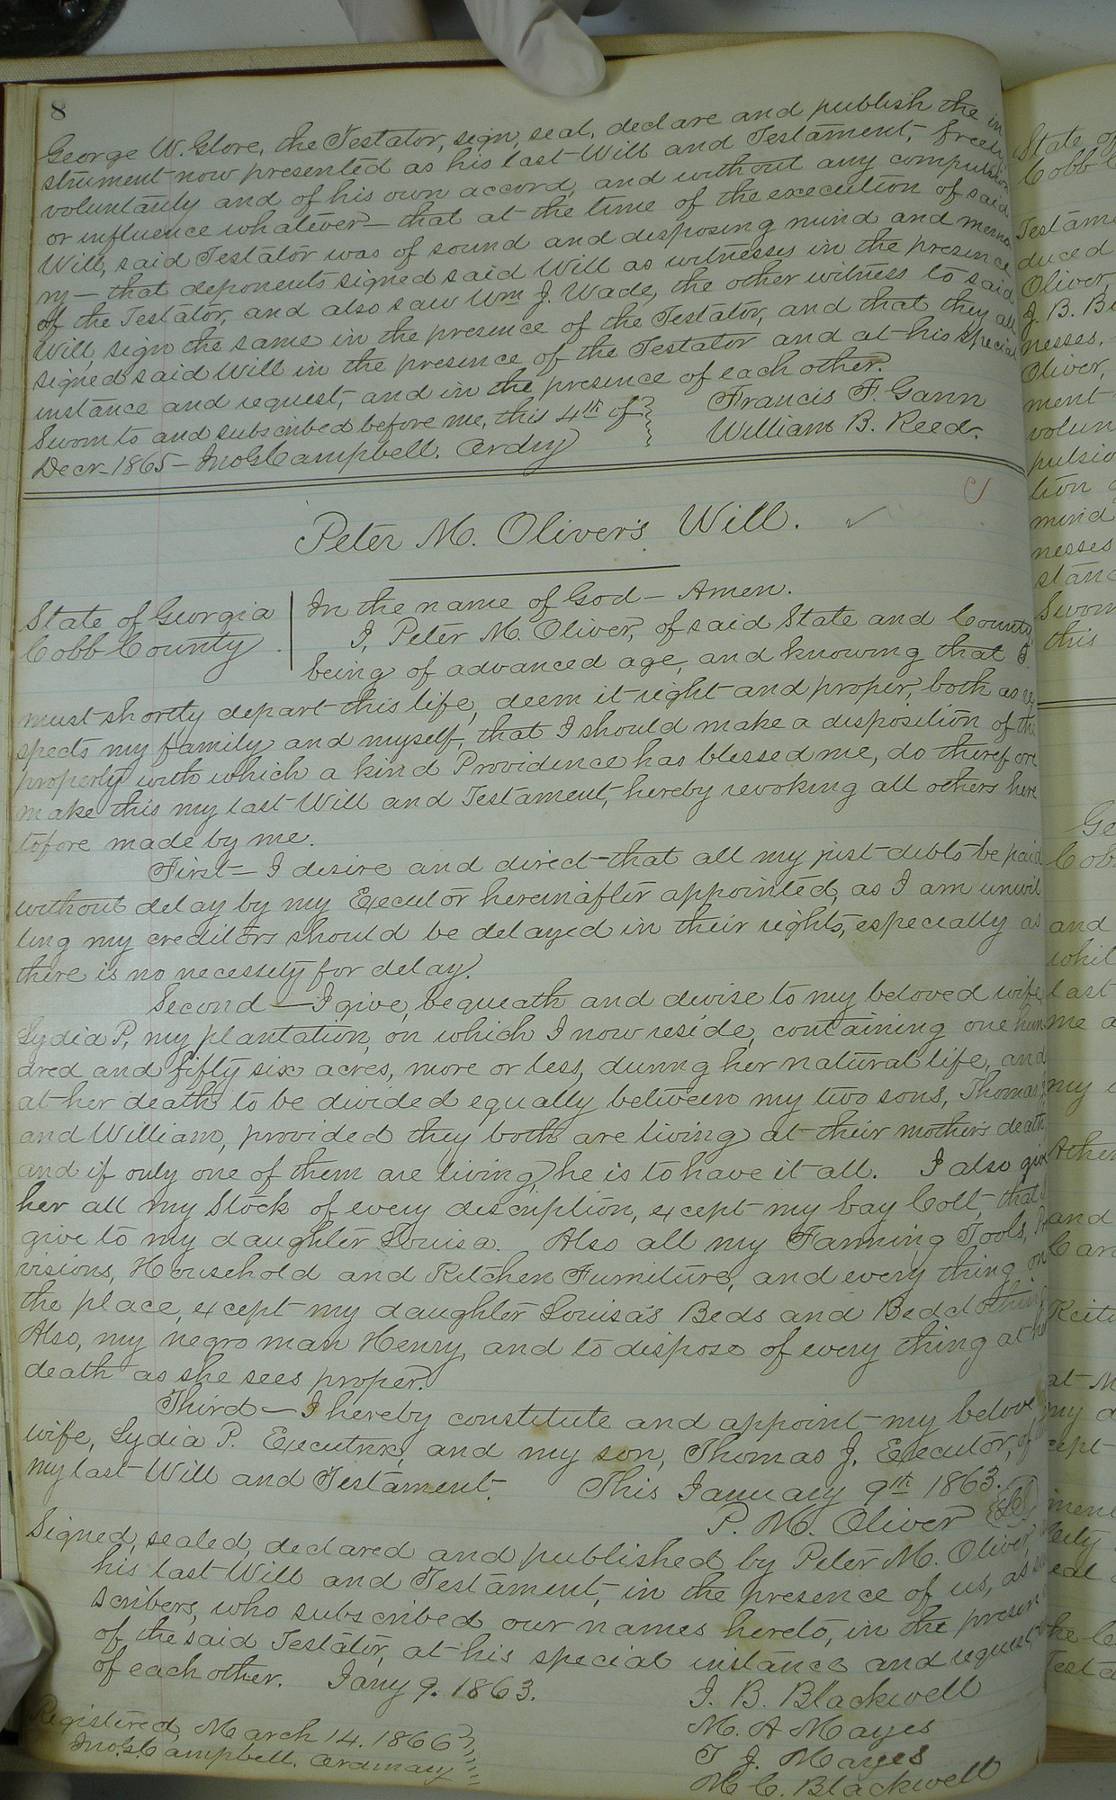 8
George W. Glore, the Testator, sign, seal, declare and publish the in
strument now presented as his last Will and Testament, freely
voluntarily and of his own accord, and without any compulsion
or influence whatever — that at the time of the execution of said
Will, said Testator was of sound and disposing mind and memo
ry — that deponents signed said Will as witnesses in the presence
of the Testator, and also saw Wm J. Wade, the other witness to said
Will, sign the same in the presence of the Testator, and that they all
signed said Will in the presence of the Testator and at his special
instance and request, and in the presence of each other.
Sworn to and subscribed before me, this 4th of
Decr 1865 – Jno G Campbell. Ordry
Francis F. Gann
William B. Reed.
Peter M. Oliver's Will.
State of Georgia
Cobb County.
In the name of God — Amen.
I, Peter M. Oliver, of said State and County
being of advanced age, and knowing that I
must shortly depart this life, deem it right and proper, both as re
spects my family and myself, that I should make a disposition of the
property with which a kind Providence has blessed me, do therefore
make this my last Will and Testament, hereby revoking all others here
tofore made by me.
First — I desire and direct that all my just debts be paid
without delay by my Executor hereinafter appointed, as I am unwil
ling my creditors should be delayed in their rights, especially as
there is no necessity for delay.
Second — I give, bequeath and devise to my beloved wife
Lydia P, my plantation, on which I now reside, containing one hun
dred and fifty six acres, more or less, during her natural life, and
at her death to be divided equally between my two sons, Thomas J.
and William, provided they both are living at their mother's death
and if only one of them are living, he is to have it all. I also give
her all my Stock of every description, except my bay Colt, that I
give to my daughter Louisa. Also all my Farming Tools, Pro
visions, Household and Kitchen Furniture, and every thing on
the place, except my daughter Louisa's Beds and Bedclothing
Also, my negro man Henry, and to dispose of every thing at her
death as she sees proper.
Third — I hereby constitute and appoint my beloved
wife, Lydia P. Executrix, and my son, Thomas J. Executor, of
my last Will and Testament. This January 9th 1863.
P. M. Oliver
Signed, sealed, declared and published by Peter M. Oliver,
his last Will and Testament, in the presence of us, as
scribers, who subscribed our names hereto, in the presence
of the said Testator, at his special instance and request
of each other. Jany 9. 1863.
J. B. Blackwell
M. A Mayes
T J. Mayes
M C. Blackwell
Registered, March 14. 1866
Jno G Campbell. Ordinary
State of
Cobb
Testam
duced
Oliver,
J. B. Bl
nesses,
Oliver,
ment
volun
pulsio
tion
mind
nesses
stanc
Sworn
this
Ge
Cob
and
whil
last
me a
my
and
Car
at
my d
cept